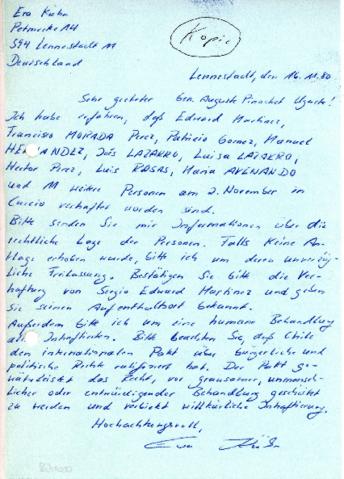 Eva Kuhn
Petmecke 14
594 Lennestadt 11
Deutschland
Kopie
Lennestadt, den 16.11.80
Sehr geehrter Gen. Augusto Pinochet Ugarte!
Ich habe erfahren, daß Eduard Martinez,
Francisco MORADA Perez, Patricio Gomez, Manuel
HERNANDEZ, Inés LAZARRO, Luisa LAZARRO,
Hector Perez, Luis ROSAS, Maria AVENDANO
und 11 weitere Personen am 2. November in
verhaftet worden sind.
Bitte senden Sie mir Informationen über die
rechtliche Lage der Personen. Falls keine An-
klage erhoben wurde, bitte ich um deren unverzüg-
liche Freilassung. Bestätigen Sie bitte die Ver-
haftung von Sergio Eduard Martinez und geben
Sie seinen Aufenthaltsort bekannt.
Außerdem bitte ich um eine humane Behandlung
der Inhaftierten. Bitte beachten Sie, daß Chile
den internationalen Pakt über bürgerliche und
politische Rechte ratifiziert hat. Der Pakt ge-
währleistet das Recht, vor grausamer, unmensch-
licher oder entwürdigender Behandlung geschützt
zu werden und verbietet willkürliche Inhaftierung.
Hochachtungsvoll,
Eva